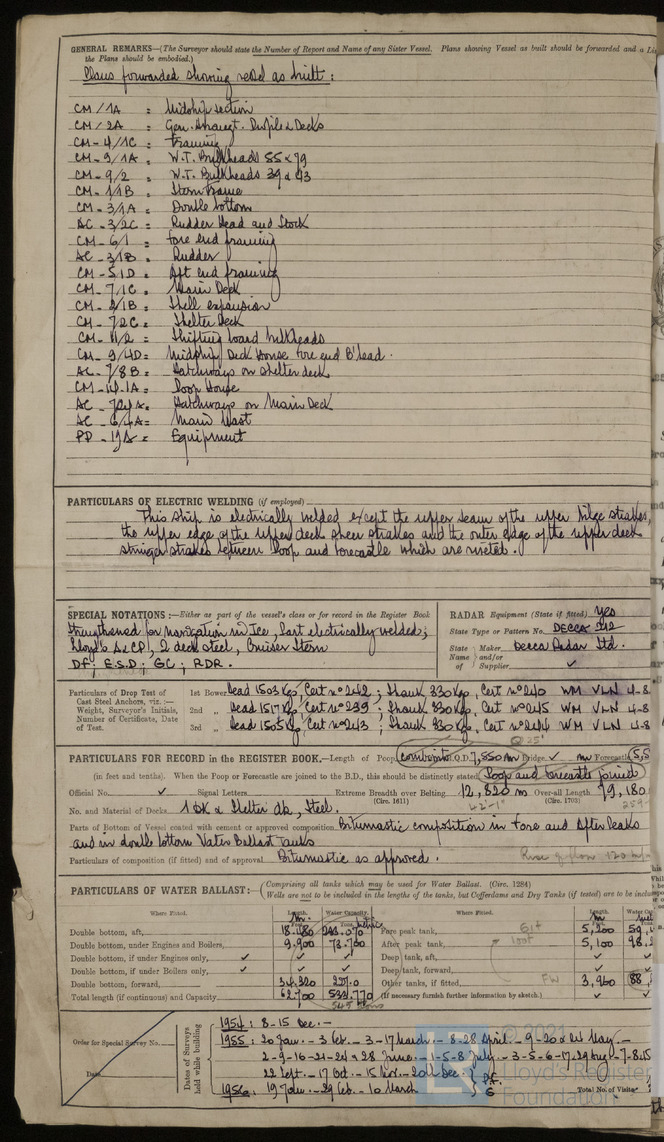 GENERAL REMARKS—(The Surveyor should state the Number of Report and Name of any Sister Vessel. Plans showing Vessel as built should be forwarded and a
the Plans should be embodied.)
Plans forwarded showing vessel as built :
CM/1A = Midship section
CM/2A = Gen. Arrangt. Profile & Decks
CM-4/1C = Framing
CM-9/1A = W.T. Bulkheads 55 & 79
CM-9/2 = W.T. Bulkheads 39 & 43
CM-1/1B = Stern Frame
CM-3/1A = Double bottom
AC-3/2C = Rudder Head and Stock
CM-6/1 = Fore end framing
AC-3/1B = Rudder
CM-5/1D = Aft end framing
CM-7/1C = Main Deck
CM-8/1B = Shell expansion
CM-7/2C = Shelter Deck
CM-11/2 = Shifting board bulkheads
CM-9/4D = Midship Deck House fore end B'head.
AC-7/8B = Hatchways on shelter deck
= Poop House
= Hatchways on Main Deck
= Main Mast
= Equipment
PARTICULARS OF ELECTRIC WELDING (if employed)
This ship is electrically welded except the upper seam of the upper bilge strakes,
the upper edge of the upper deck sheer strakes and the outer edge of the upper deck
stringer strakes between Poop and Forecastle which are riveted.
SPECIAL NOTATIONS :—Either as part of the vessel's class or for record in the Register Book
RADAR Equipment (State if fitted) Yes
Strengthened for navigation in Ice, Part electrically welded;
State Type or Pattern No. DECCA 212
Lloyd's A&CP, 2 deck steel, Cruiser Stern
State Name Maker and/or of Supplier Decca Radar Ltd.
DF; E.S.D; GC; RDR.
Particulars of Drop Test of Cast Steel Anchors, viz.:— Weight, Surveyor's Initials, Number of Certificate, Date of Test.
1st Bower Head 1503 Kgs, Cert n°242; Shank 830 Kgs, Cert n°240 WM VLN 4-8
2nd „ Head 1517 Kgs, Cert n°239; Shank 830 Kgs, Cert n°245 WM VLN 4-8
3rd „ Head 1505 Kgs, Cert n°243; Shank 830 Kgs, Cert n°244 WM VLN 4-8
PARTICULARS FOR RECORD in the REGISTER BOOK.—Length of Poop combined Q.D. 7,850 m Bridge ✓ m Forecastle 5,5
(in feet and tenths). When the Poop or Forecastle are joined to the B.D., this should be distinctly stated Poop and forecastle joined
Official No. ✓ Signal Letters Extreme Breadth over Belting 12,820 m Over-all Length 79,180
(Circ. 1611) 42'-1" (Circ. 1703) 259
No. and Material of Decks 1 Dk & Shelter dk, Steel.
Parts of Bottom of Vessel coated with cement or approved composition Bitumastic composition in Fore and After Peaks
and in double bottom Water Ballast Tanks
Particulars of composition (if fitted) and of approval Bitumastic as approved.
PARTICULARS OF WATER BALLAST:—(Comprising all tanks which may be used for Water Ballast. (Circ. 1284)
Wells are not to be included in the lengths of the tanks, but Cofferdams and Dry Tanks (if tested) are to be
Where Fitted. Length. Water Capacity. Where Fitted. Length. Water
Double bottom, aft, 18.480 Fore peak tank, 5,200 59,
Double bottom, under Engines and Boilers, 9.900 73.700 After peak tank, 5,100 98,
Double bottom, if under Engines only, ✓ ✓ Deep tank, aft, ✓
Double bottom, if under Boilers only, ✓ ✓ Deep tank, forward, ✓
Double bottom, forward, 34.320 Other tanks, if fitted, FW 3,960 88
Total length (if continuous) and Capacity, 62,700 (If necessary furnish further information by sketch.) ✓
Order for Special Survey No.
Date
Dates of Surveys held while building
1954: 8-15 Dec.-
1955: 20 Jan.- 3 Feb.- 3-17 March - 8-28 April - 9-20 & 24 May.-
2-9-16-21-24 & 28 June.- 1-5-8 July.- 3-5-6-17-29 Aug - 7-8-15
22 Sept.- 17 Oct.- 15 Nov.- 20 Dec.
1956: 19 Jan.- 29 Feb.- 10 March
Total No. of Visits
© 2021
Lloyd's Register
Foundation